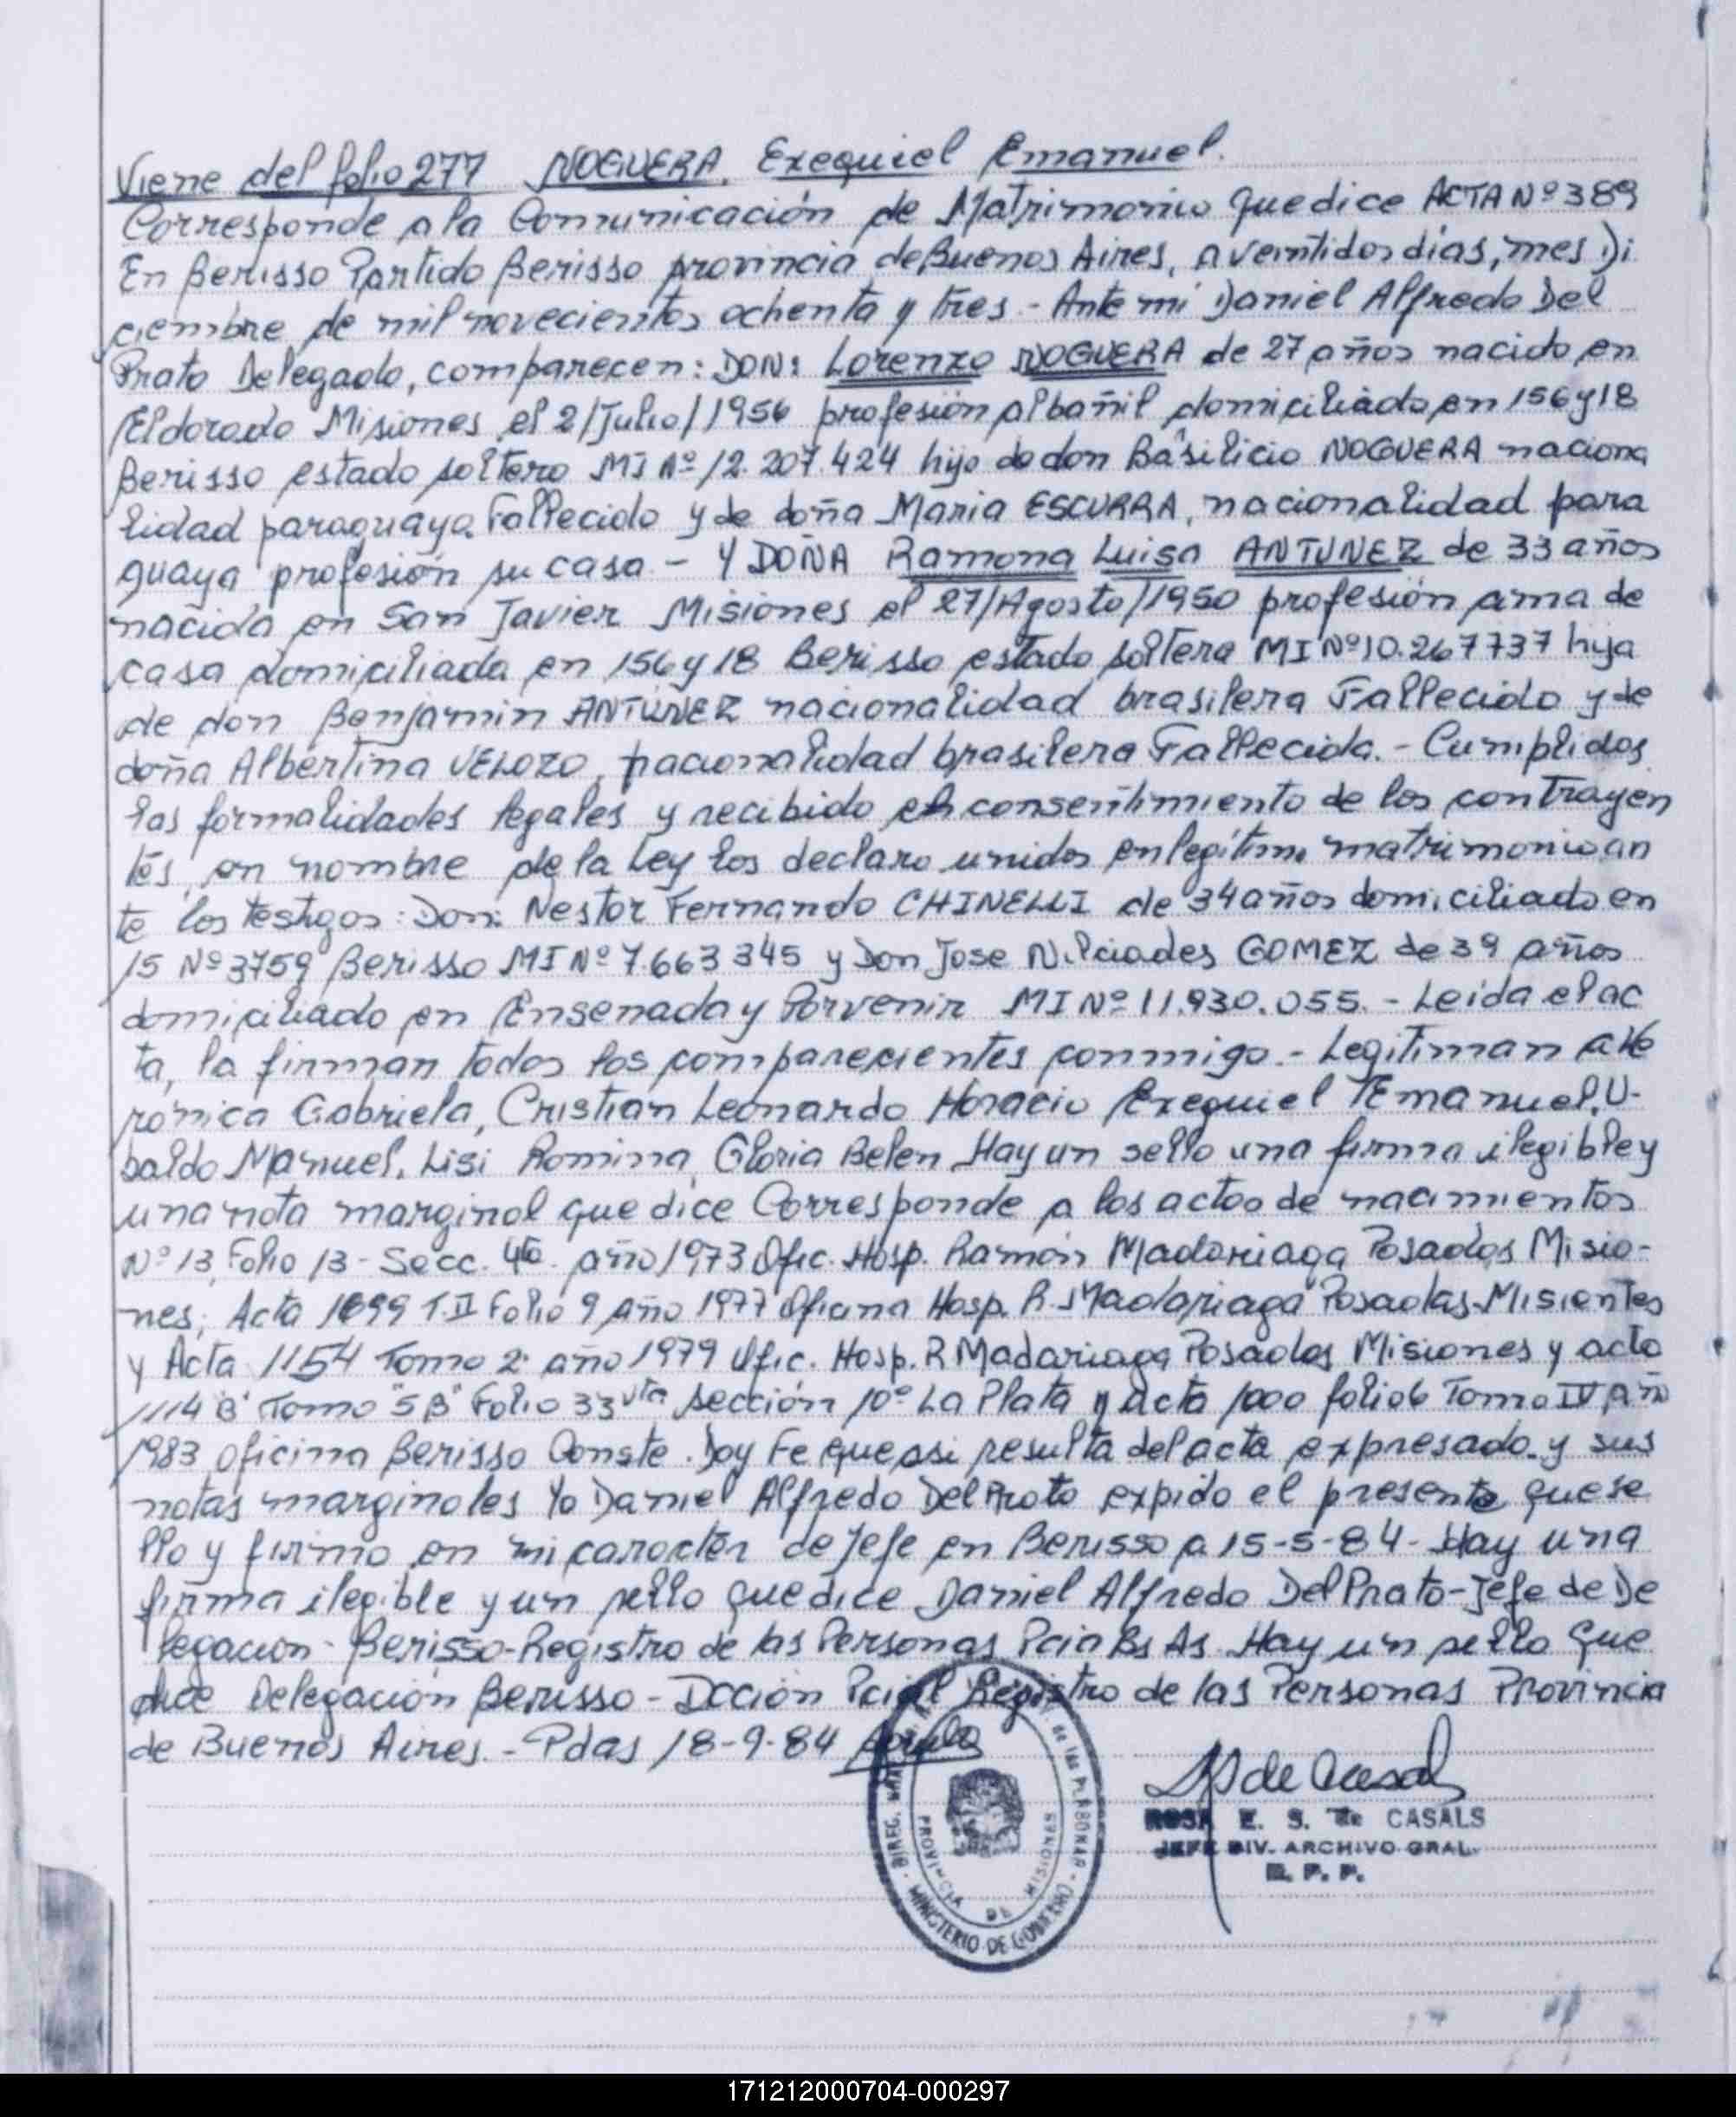 Viene del folio 277 NOGUERA. Exequiel Emanuel.
Corresponde a la Comunicación de Matrimonio que dice ACTA Nº 389
En Berisso Partido Berisso provincia de Buenos Aires, a veintidos días, mes Di
ciembre de mil novecientos ochenta y tres - Ante mi Daniel Alfredo Del
Prato Delegado, comparecen: DON: Lorenzo NOGUERA de 27 años nacido en
Eldorado Misiones el 2/Julio/1956 profesión albañil domiciliado en 156 y 18
Berisso estado soltero MI Nº 12.207.424 hijo de don Basilicio NOGUERA naciona
lidad paraguaya Fallecido y de doña Maria ESCURRA, nacionalidad para
guaya profesión su casa - Y DOÑA Ramona Luisa ANTUNEZ de 33 años
nacida en San Javier Misiones el 27/Agosto/1950 profesión ama de
casa domiciliada en 156 y 18 Berisso estado soltera MI Nº 10.267737 hija
de don Benjamin ANTUNEZ nacionalidad brasilera Fallecido y de
doña Albertina VELOZO, nacionalidad brasilera Fallecida. - Cumplidos
las formalidades legales y recibido el consentimiento de los contrayen
tes, en nombre de la Ley los declaro unidos en legítimo matrimonio an
te los testigos: Don: Nestor Fernando CHINELLI de 34 años domiciliado en
15 Nº 3759 Berisso MI Nº 7.663 345 y Don Jose GOMEZ de 39 años
domiciliado en Ensenada y Porvenir MI Nº 11.930.055. - Leida el ac
ta, la firman todos los comparecientes conmigo. - Legitiman a Ve
ronica Gabriela, Cristian Leonardo Horacio Exequiel Emanuel, U-
baldo Manuel, Lisi Romina, Gloria Belen Hay un sello una firma ilegible y
una nota marginal que dice Corresponde a los actos de nacimientos
Nº 13 Folio 13 - Secc. 4ta año 1973 Ofic. Hosp. Ramón Madariaga Posadas Misio-
nes, Acta 1699 T.II Folio 9 Año 1977 Oficina Hosp. R. Madariaga Posadas - Misiones
y Acta 1154 Tomo 2º año 1979 Ofic. Hosp. R Madariaga Posadas Misiones y acta
1114 "B" Tomo "5 B" Folio 33 vta sección 10º La Plata y Acta 1000 folio 6 Tomo IV año
1983 Oficina Berisso Conste. Doy Fe que asi resulta del acta expresado y sus
notas marginales Yo Daniel Alfredo Del Prato expido el presente que se
llo y firmo en mi carácter de Jefe en Berisso a 15-5-84 - Hay una
firma ilegible y un sello que dice Daniel Alfredo Del Prato - Jefe de De
legacion - Berisso - Registro de las Personas Pcia Bs As. Hay un sello que
dice Delegación Berisso - Dcción Pcial Registro de las Personas Provincia
de Buenos Aires. - Pdas 18-9-84
ROSA E. S. de CASALS
JEFE DIV. ARCHIVO GRAL.
R. P. P.
de las PERSONAS - MINISTERIO DE GOBIERNO
PROVINCIA DE MISIONES
171212000704-000297